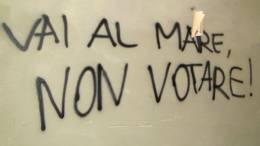 VAI AL MARE,
NON VOTARE!